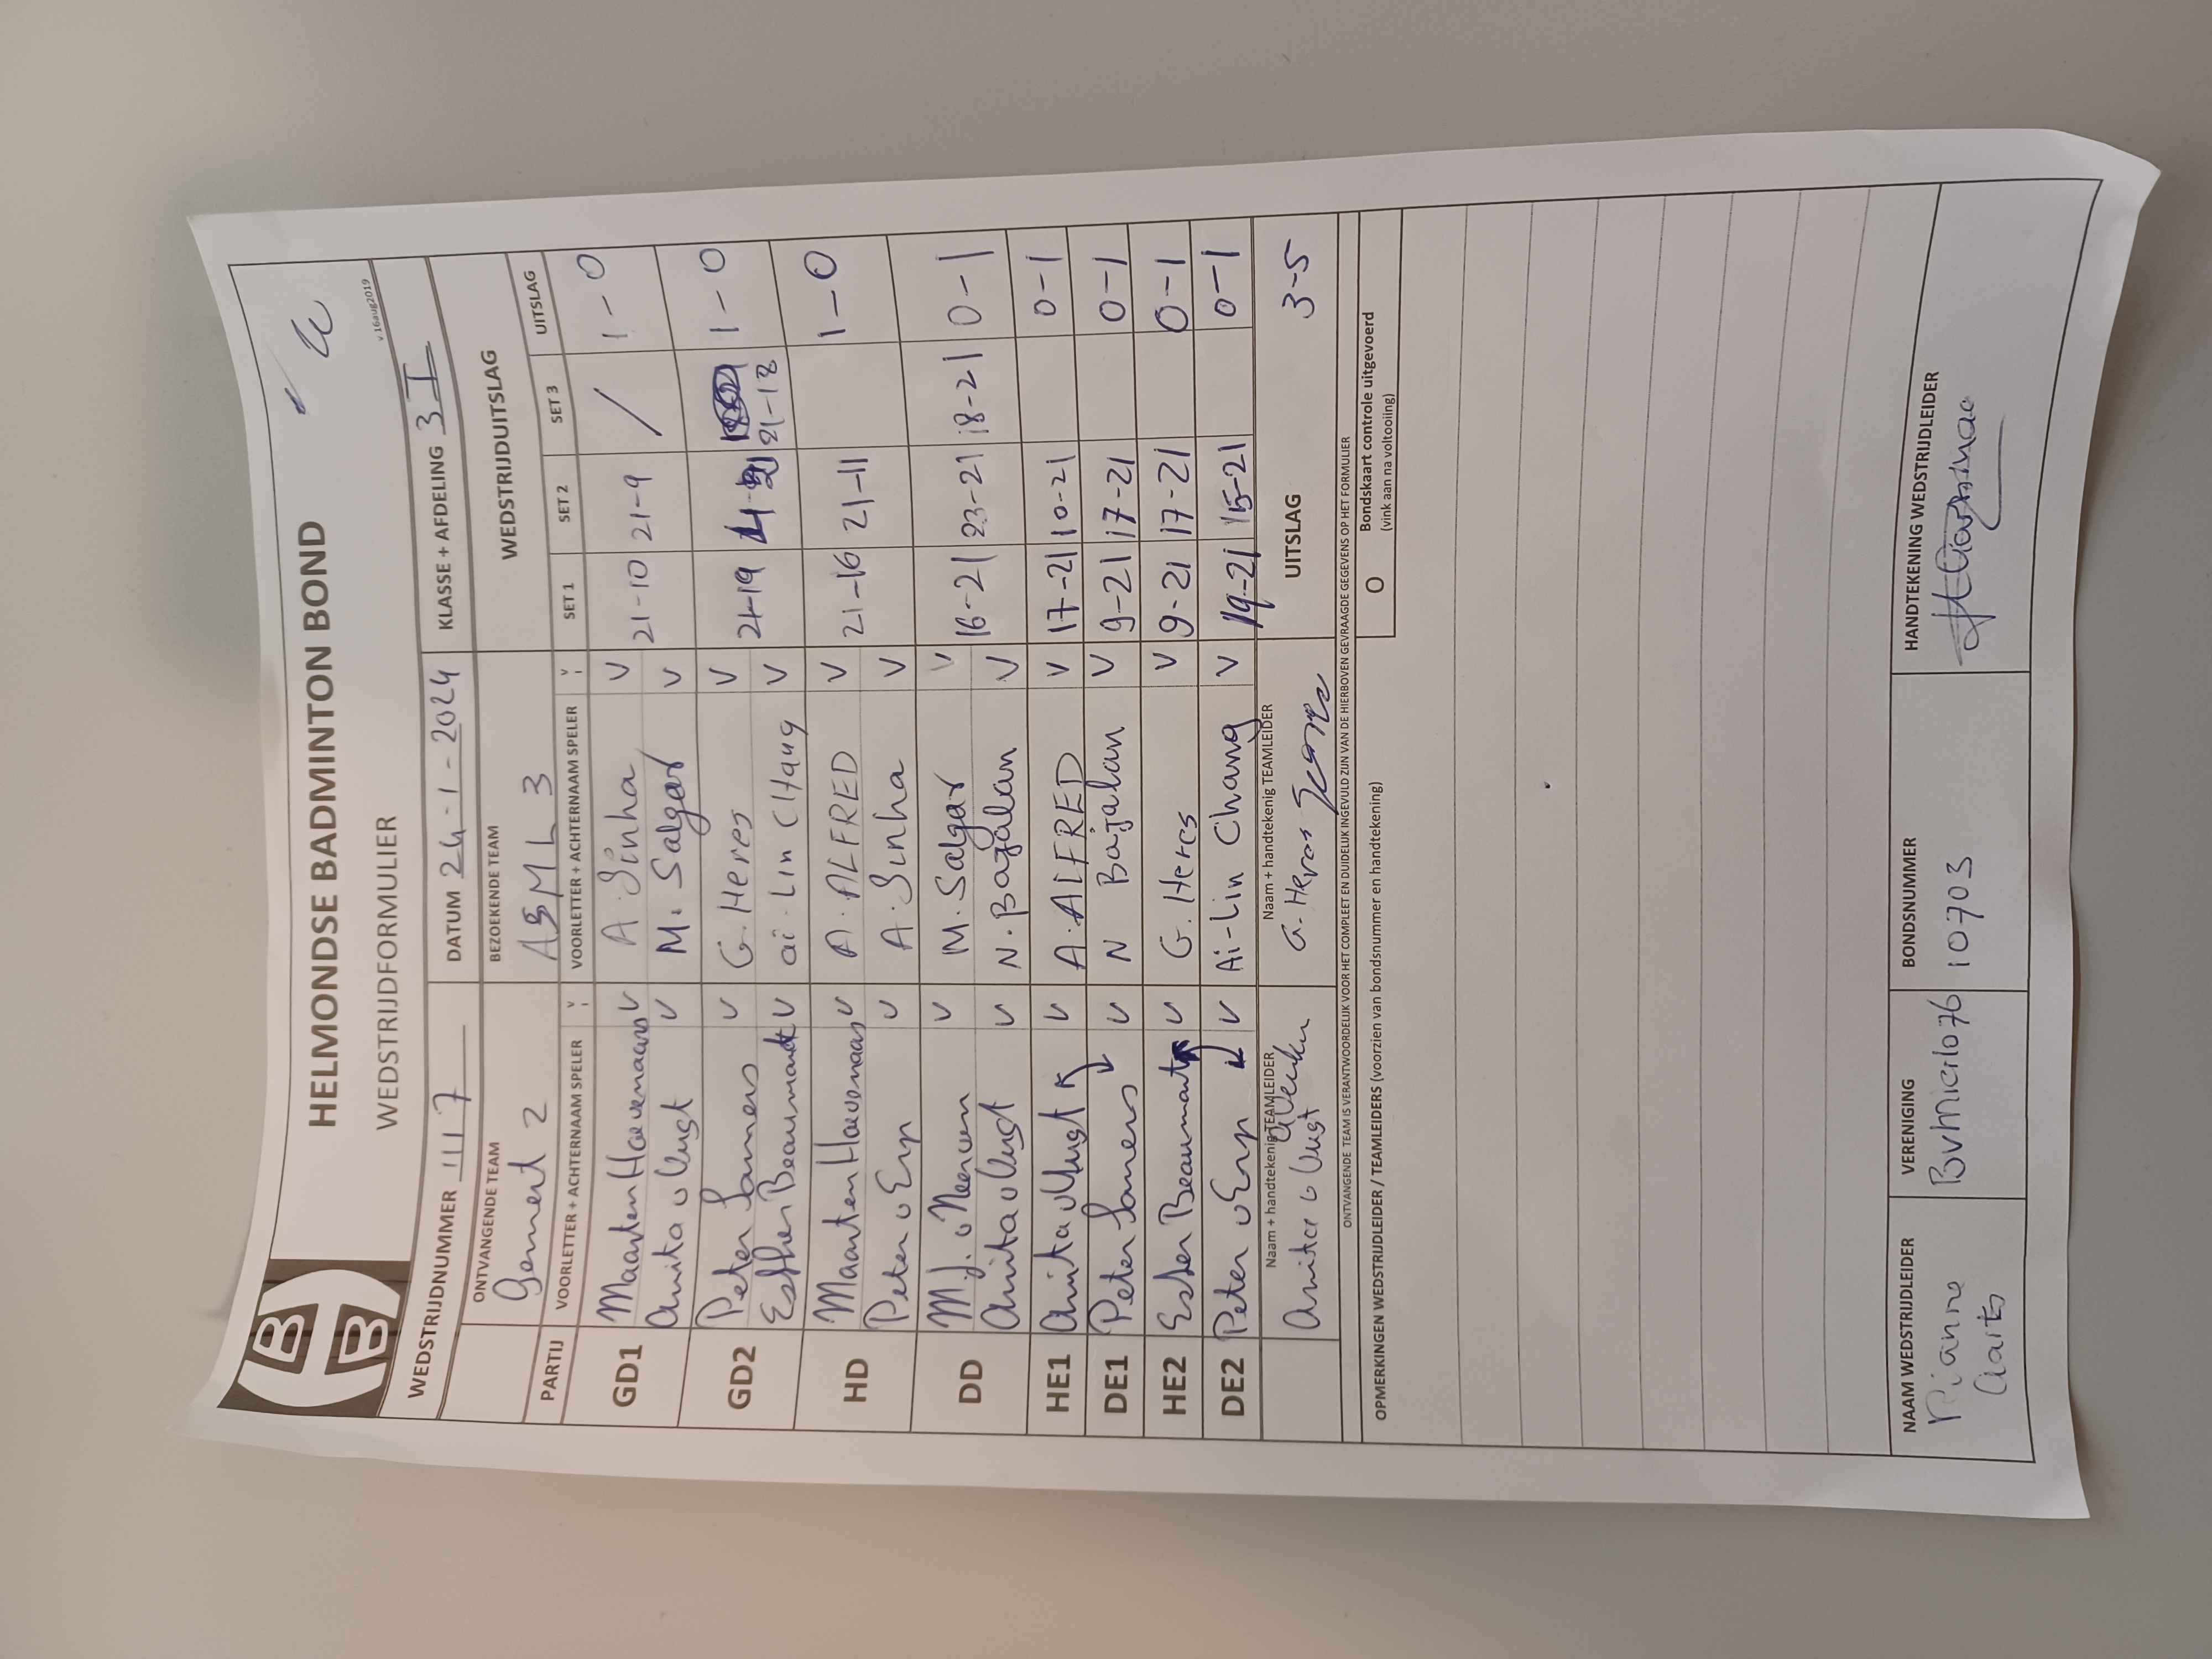 HELMONDSE BADMINTON BOND
WEDSTRIJDFORMULIER
v.16aug2019
WEDSTRIJDNUMMER III 7 DATUM 24-1-2024 KLASSE + AFDELING 3 I
ONTVANGENDE TEAM BEZOEKENDE TEAM WEDSTRIJDUITSLAG
Gemert 2 ASML 3
PARTIJ VOORLETTER + ACHTERNAAM SPELER V VOORLETTER + ACHTERNAAM SPELER V SET 1 SET 2 SET 3 UITSLAG
GD1 Maarten Havermaans V A. Sinha V 21-10 21-9 / 1-0
Anita v Vugt V M. Salgar V
GD2 Peter Somers V G. Heres V 21-19 1-0
Esther Beaumandt V ai-Lin CHang V 21-18
HD Maarten Havermaans V A. ALFRED V 21-16 21-11 1-0
Peter v Erp V A. Sinha V
DD M.J. v Meerwen V M. Salgar V 16-21 23-21 18-21 0-1
Anita v Vugt V N. Bajalan V
HE1 Anita v Vugt V A. ALFRED V 17-21 10-21 0-1
DE1 Peter Somers V N Bajalan V 9-21 17-21 0-1
HE2 Ester Beaumant V G. Heres V 9-21 17-21 0-1
DE2 Peter v Erp V Ai-Lin Chang V 19-21 15-21 0-1
Naam + handtekenig TEAMLEIDER Naam + handtekenig TEAMLEIDER
Anita v Vugt G. Heres UITSLAG 3-5
ONTVANGENDE TEAM IS VERANTWOORDELIJK VOOR HET COMPLEET EN DUIDELIJK INGEVULD ZIJN VAN DE HIERBOVEN GEVRAAGDE GEGEVENS OP HET FORMULIER
OPMERKINGEN WEDSTRIJDLEIDER / TEAMLEIDERS (voorzien van bondsnummer en handtekening) O Bondskaart controle uitgevoerd
(vink aan na voltooiing)
NAAM WEDSTRIJDLEIDER VERENIGING BONDSNUMMER HANDTEKENING WEDSTRIJDLEIDER
Aarts 10703